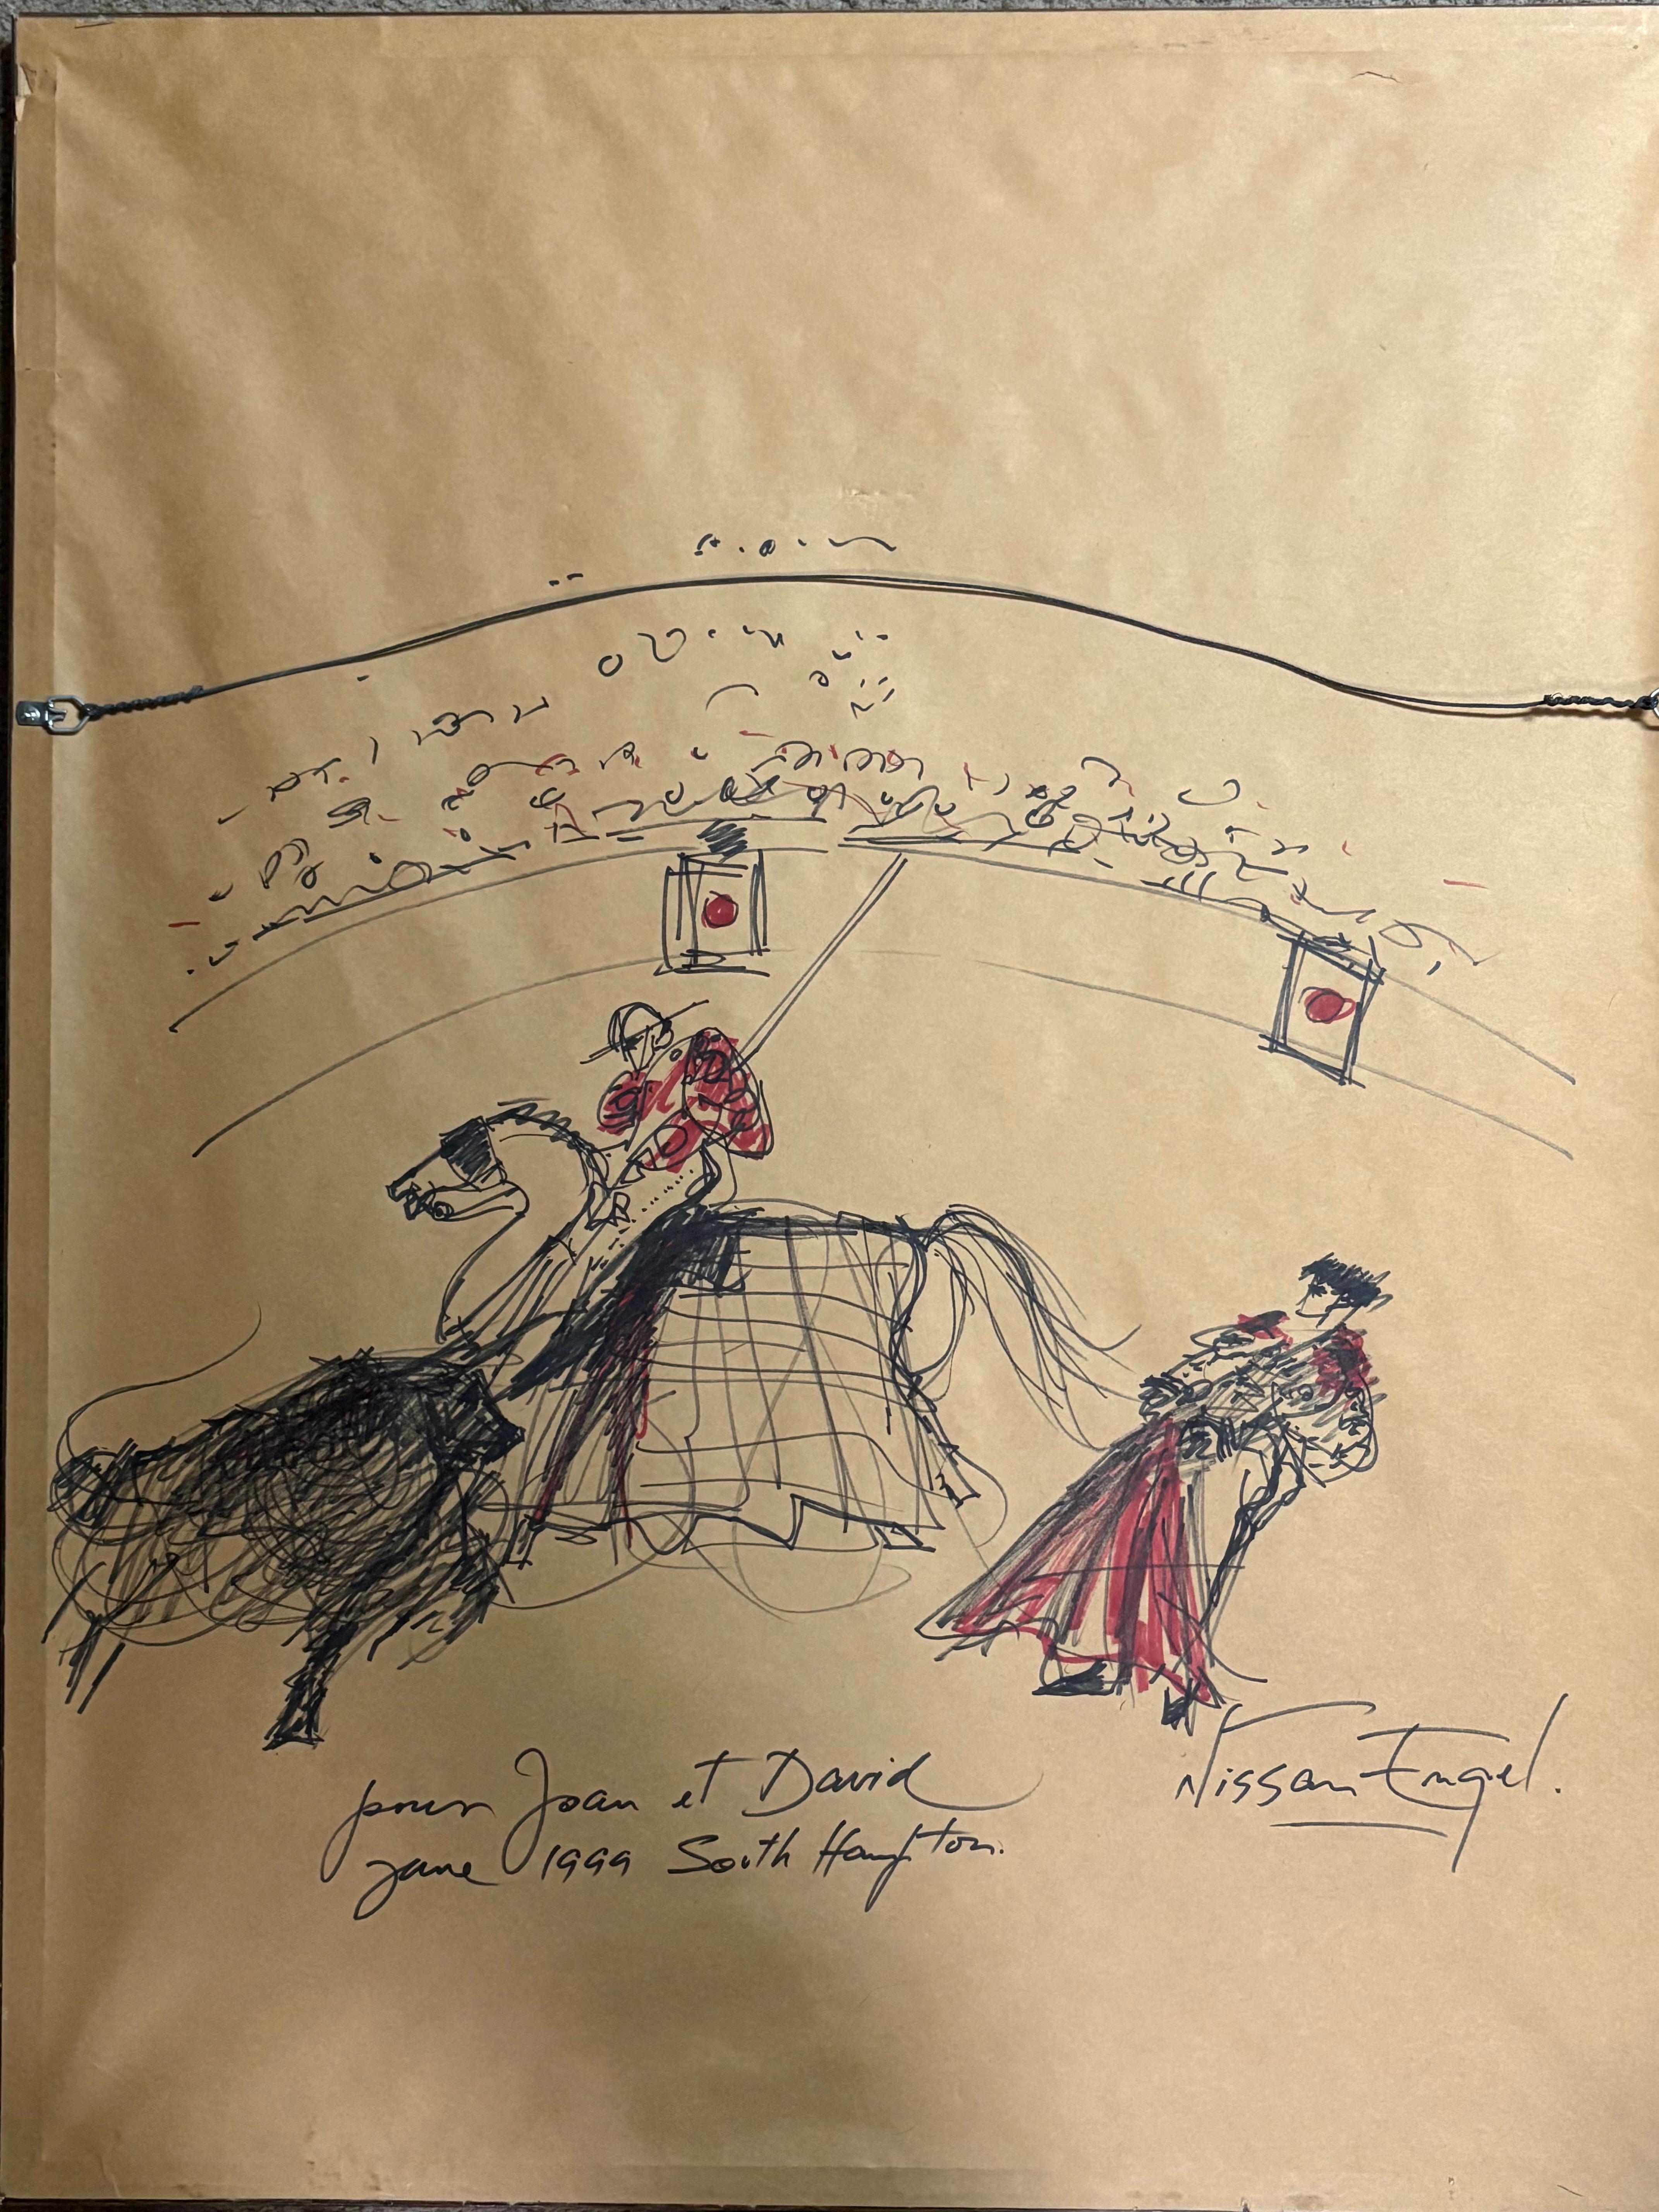 pour Joan et David
june 1999 South Hampton.
Nissan Engel.